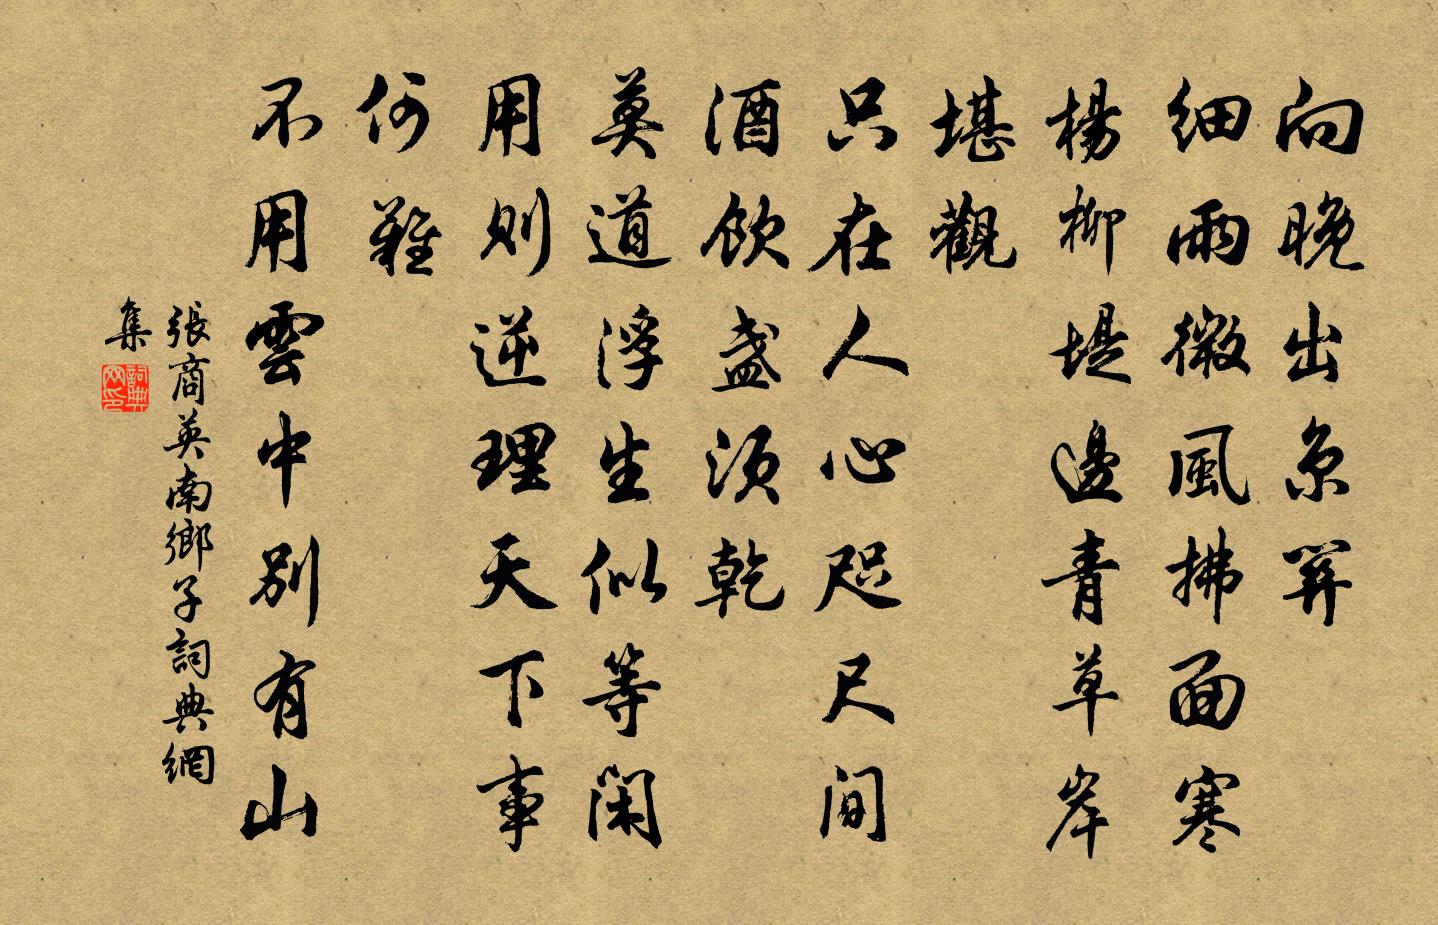 向晚出京關
細雨微風拂面寒
楊柳堤邊青草岸
堪觀
只在人心咫尺間
酒飲盞須乾
莫道浮生似等閑
用則逆理天下事
何難
不用雲中別有山
張商英南鄉子詞典網
集
詞典網印